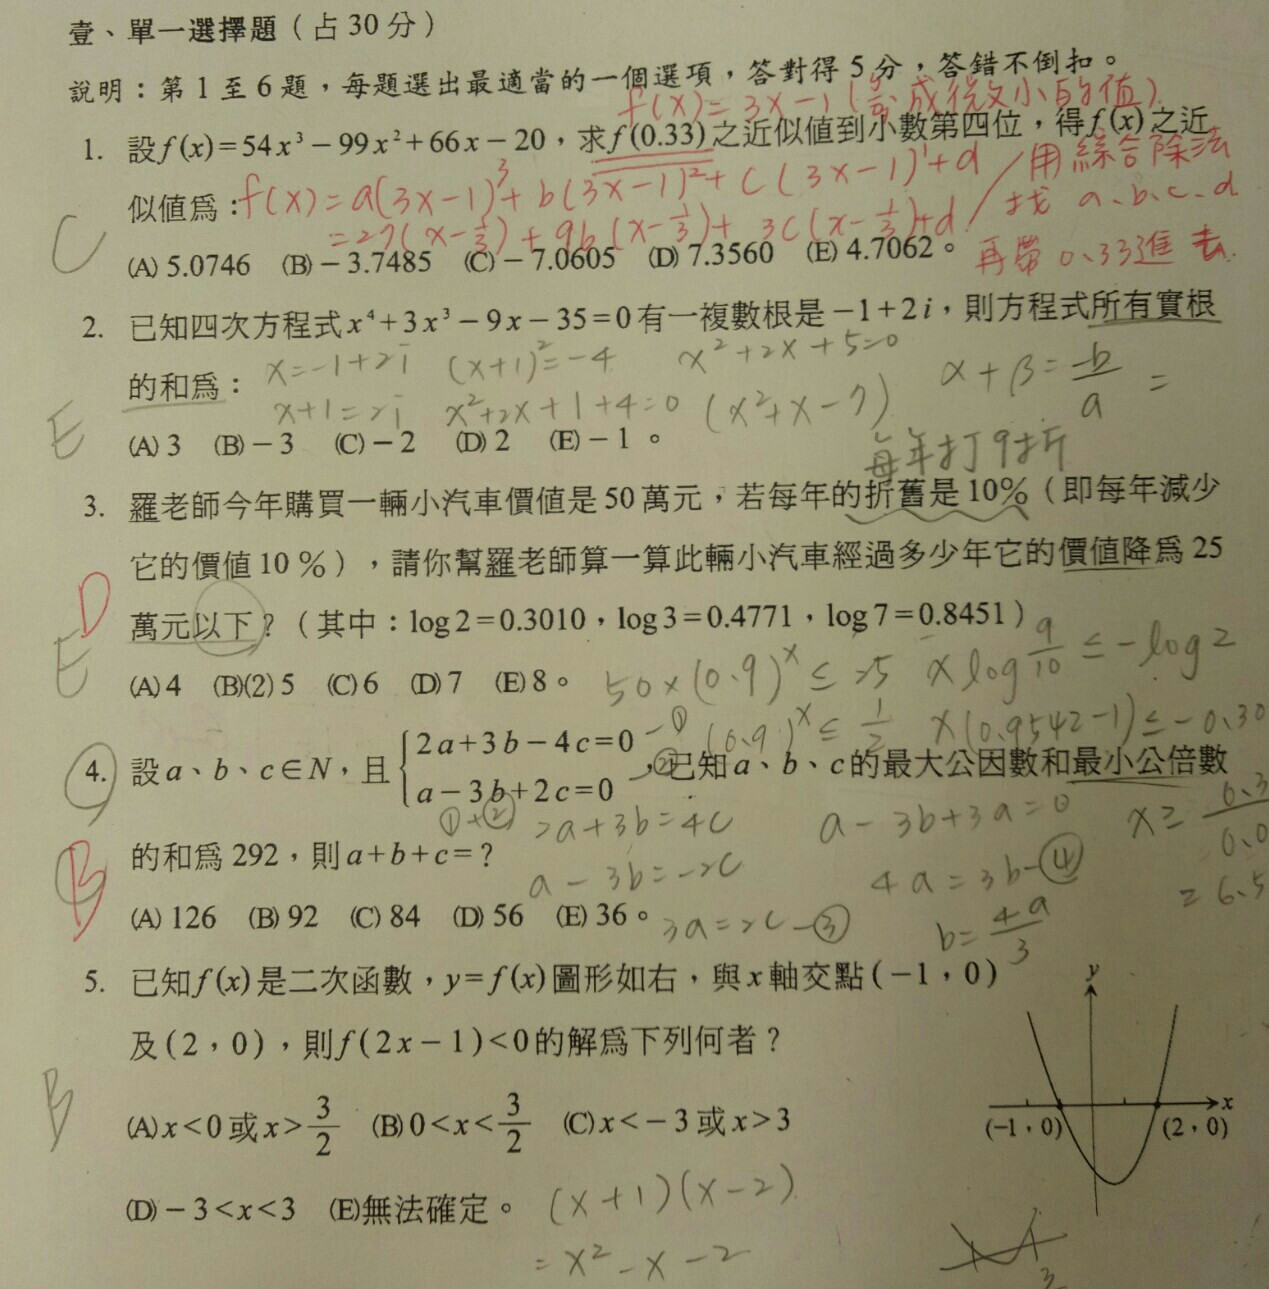 壹、單一選擇題（占30分）
說明：第1至6題，每題選出最適當的一個選項，答對得5分，答錯不倒扣。
f(x)=3x-1 (成很小的值)
1. 設f(x)=54x³－99x²+66x－20，求f(0.33)之近似值到小數第四位，得f(x)之近
似值為：
f(x)=a(3x-1)³+b(3x-1)²+c(3x-1)¹+d / 用綜合除法
=27(x-1/3)+9b(x-1/3)+3c(x-1/3)+d / 找 a、b、c、d
再帶0.33進去
C
(A) 5.0746 (B)－3.7485 (C)－7.0605 (D) 7.3560 (E) 4.7062。
2. 已知四次方程式x⁴+3x³－9x－35=0有一複數根是－1+2i，則方程式所有實根
的和為：
x=-1+2i (x+1)²=-4 x²+2x+5=0 α+β=-b/a =
x+1=2i x²+2x+1+4=0 (x²+x-7)
E
(A) 3 (B)－3 (C)－2 (D) 2 (E)－1。
每年打9折
3. 羅老師今年購買一輛小汽車價值是50萬元，若每年的折舊是10%（即每年減少
它的價值10%），請你幫羅老師算一算此輛小汽車經過多少年它的價值降為25
D
萬元以下？（其中：log2=0.3010，log3=0.4771，log7=0.8451）
E
(A) 4 (B)(2) 5 (C) 6 (D) 7 (E) 8。
50×(0.9)ˣ≤25 x log 9/10 ≤ -log2
(0.9)ˣ≤1/2 x(0.9542-1)≤-0.30
4. 設a、b、c∈N，且{2a+3b－4c=0 -①
a－3b+2c=0 -②，已知a、b、c的最大公因數和最小公倍數
①+② 2a+3b=4c a-3b+3a=0 x≥ 0.3/0.0
的和為292，則a+b+c=？
a-3b=-2c 4a=3b-④ = 6.5
B
(A) 126 (B) 92 (C) 84 (D) 56 (E) 36。
3a=2c-③ b=4a/3
5. 已知f(x)是二次函數，y=f(x)圖形如右，與x軸交點(－1，0)
及(2，0)，則f(2x－1)<0的解為下列何者？
B
(A) x<0或x>3/2 (B) 0<x<3/2 (C) x<－3或x>3
(D)－3<x<3 (E)無法確定。
(x+1)(x-2)
=x²-x-2
y
x
(−1，0)
(2，0)